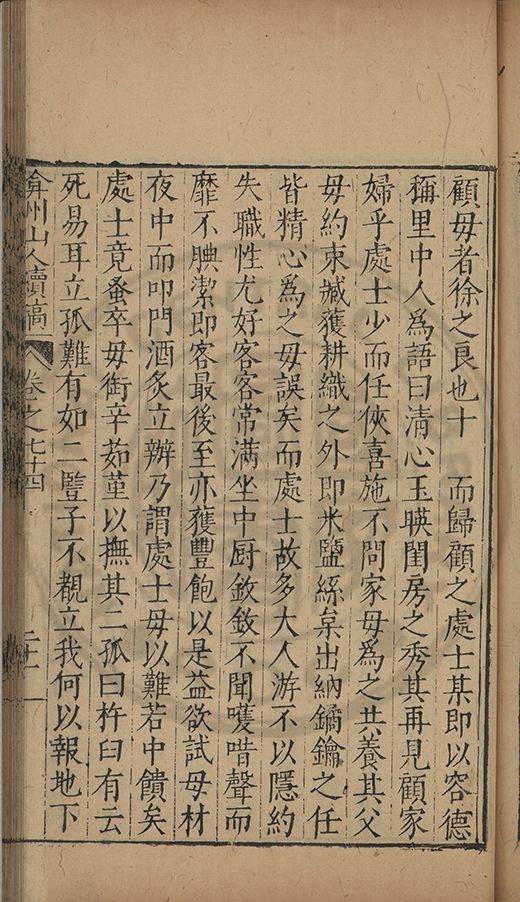 顧毋者徐之良也十　而歸顧之處士某即以容德
稱里中人為語曰清心玉暎閨房之秀其再見顧家
婦乎處士少而任俠喜施不問家毋為之共養其父
毋約束臧獲耕織之外即米鹽絲枲出納鐍鑰之任
皆精心為之毋誤矣而處士故多大人游不以隱約
失職性尤好客客常滿坐中厨敘敘不聞嚄唶聲而
靡不腆潔即客最後至亦獲豐飽以是益欲試毋材
夜中而叩門酒炙立辦乃謂處士毋以難若中饋矣
處士竟蚤卒毋銜辛茹堇以撫其二孤曰杵臼有云
死易耳立孤難有如二豎子不覩立我何以報地下
弇州山人續稿 卷之七十四 二十一